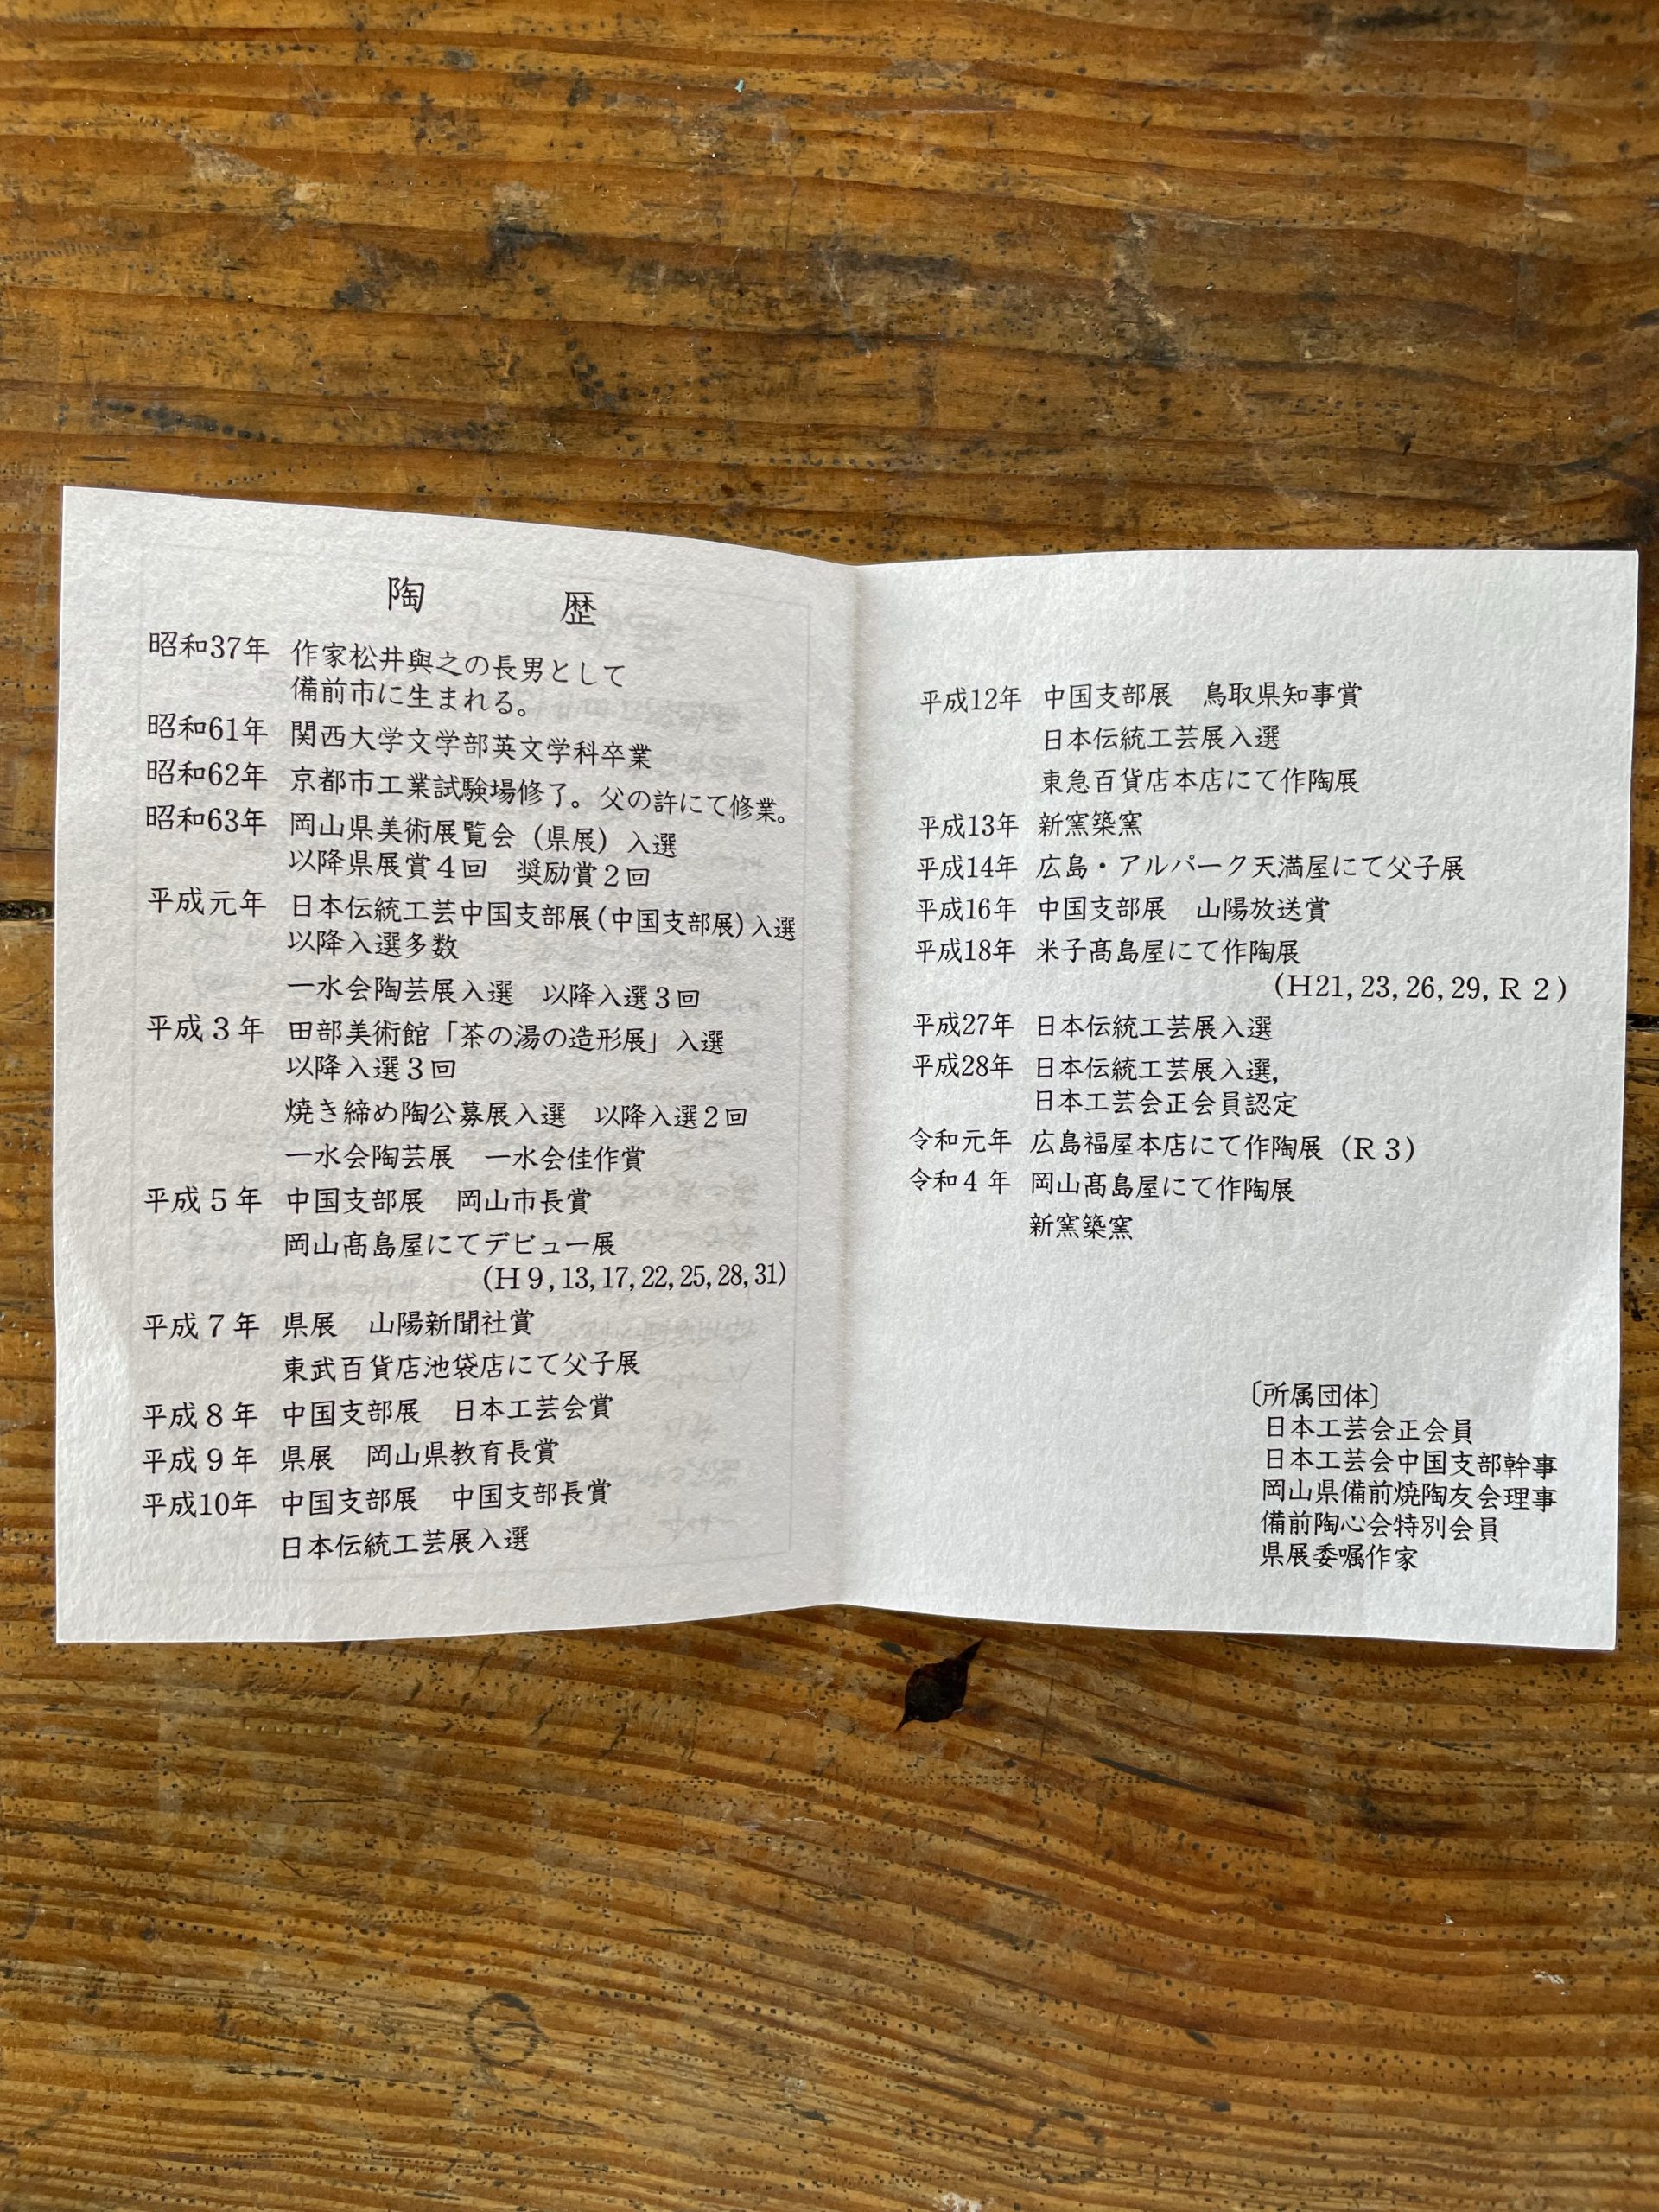 陶　歴
昭和37年 作家松井與之の長男として
備前市に生まれる。
昭和61年 関西大学文学部英文学科卒業
昭和62年 京都市工業試験場修了。父の許にて修業。
昭和63年 岡山県美術展覧会（県展）入選
以降県展賞４回　奨励賞２回
平成元年 日本伝統工芸中国支部展(中国支部展)入選
以降入選多数
一水会陶芸展入選　以降入選３回
平成３年 田部美術館「茶の湯の造形展」入選
以降入選３回
焼き締め陶公募展入選　以降入選２回
一水会陶芸展　一水会佳作賞
平成５年 中国支部展　岡山市長賞
岡山髙島屋にてデビュー展
(H９,13,17,22,25,28,31)
平成７年 県展　山陽新聞社賞
東武百貨店池袋店にて父子展
平成８年 中国支部展　日本工芸会賞
平成９年 県展　岡山県教育長賞
平成10年 中国支部展　中国支部長賞
日本伝統工芸展入選
平成12年 中国支部展　鳥取県知事賞
日本伝統工芸展入選
東急百貨店本店にて作陶展
平成13年 新窯築窯
平成14年 広島・アルパーク天満屋にて父子展
平成16年 中国支部展　山陽放送賞
平成18年 米子髙島屋にて作陶展
(H21,23,26,29,R２)
平成27年 日本伝統工芸展入選
平成28年 日本伝統工芸展入選，
日本工芸会正会員認定
令和元年 広島福屋本店にて作陶展（R３）
令和４年 岡山髙島屋にて作陶展
新窯築窯
〔所属団体〕
日本工芸会正会員
日本工芸会中国支部幹事
岡山県備前焼陶友会理事
備前陶心会特別会員
県展委嘱作家